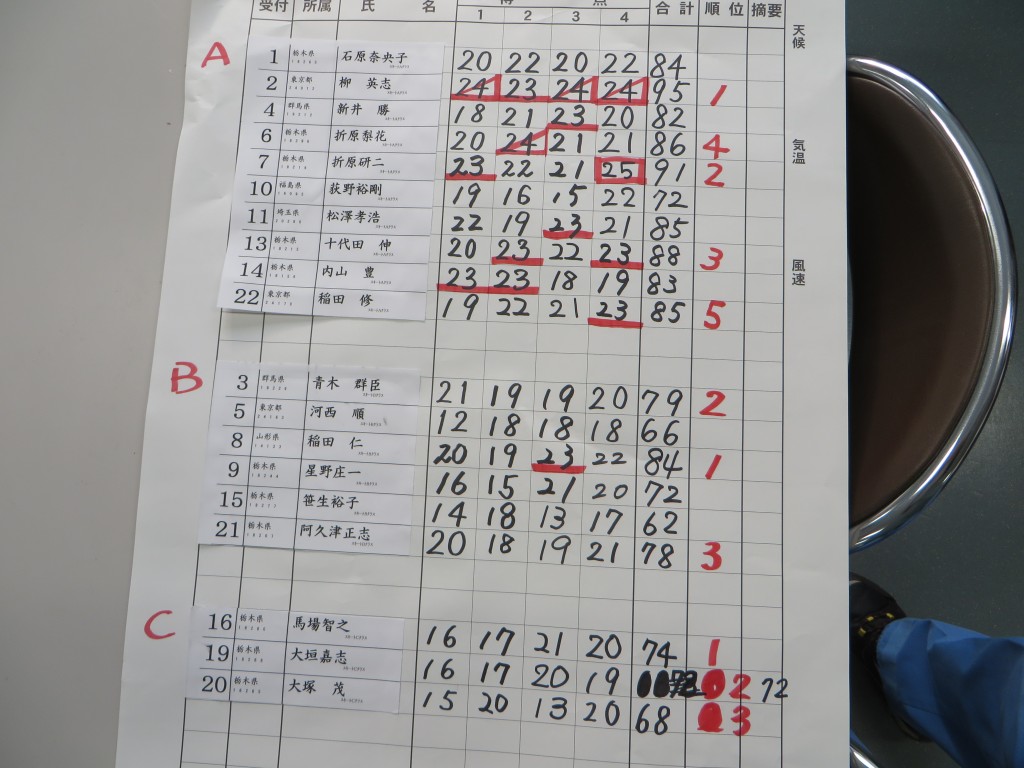 受付 所属 氏 名 得 点 合計 順位 摘要
1 2 3 4
天候
気温
風速
A
1 栃木県 石原奈央子 20 22 20 22 84
2 東京都 柳 英志 24 23 24 24 95 1
4 群馬県 新井 勝 18 21 23 20 82
6 栃木県 折原梨花 20 24 21 21 86 4
7 栃木県 折原研二 23 22 21 25 91 2
10 福島県 荻野裕剛 19 16 15 22 72
11 埼玉県 松澤孝浩 22 19 23 21 85
13 栃木県 十代田 伸 20 23 22 23 88 3
14 栃木県 内山 豊 23 23 18 19 83
22 東京都 稲田 修 19 22 21 23 85 5
B
3 群馬県 青木 群臣 21 19 19 20 79 2
5 東京都 河西 順 12 18 18 18 66
8 山形県 稲田 仁 20 19 23 22 84 1
9 栃木県 星野庄一 16 15 21 20 72
15 栃木県 笹生裕子 14 18 13 17 62
21 栃木県 阿久津正志 20 18 19 21 78 3
C
16 栃木県 馬場智之 16 17 21 20 74 1
19 栃木県 大垣嘉志 16 17 20 19 2 72
20 栃木県 大塚 茂 15 20 13 20 68 3